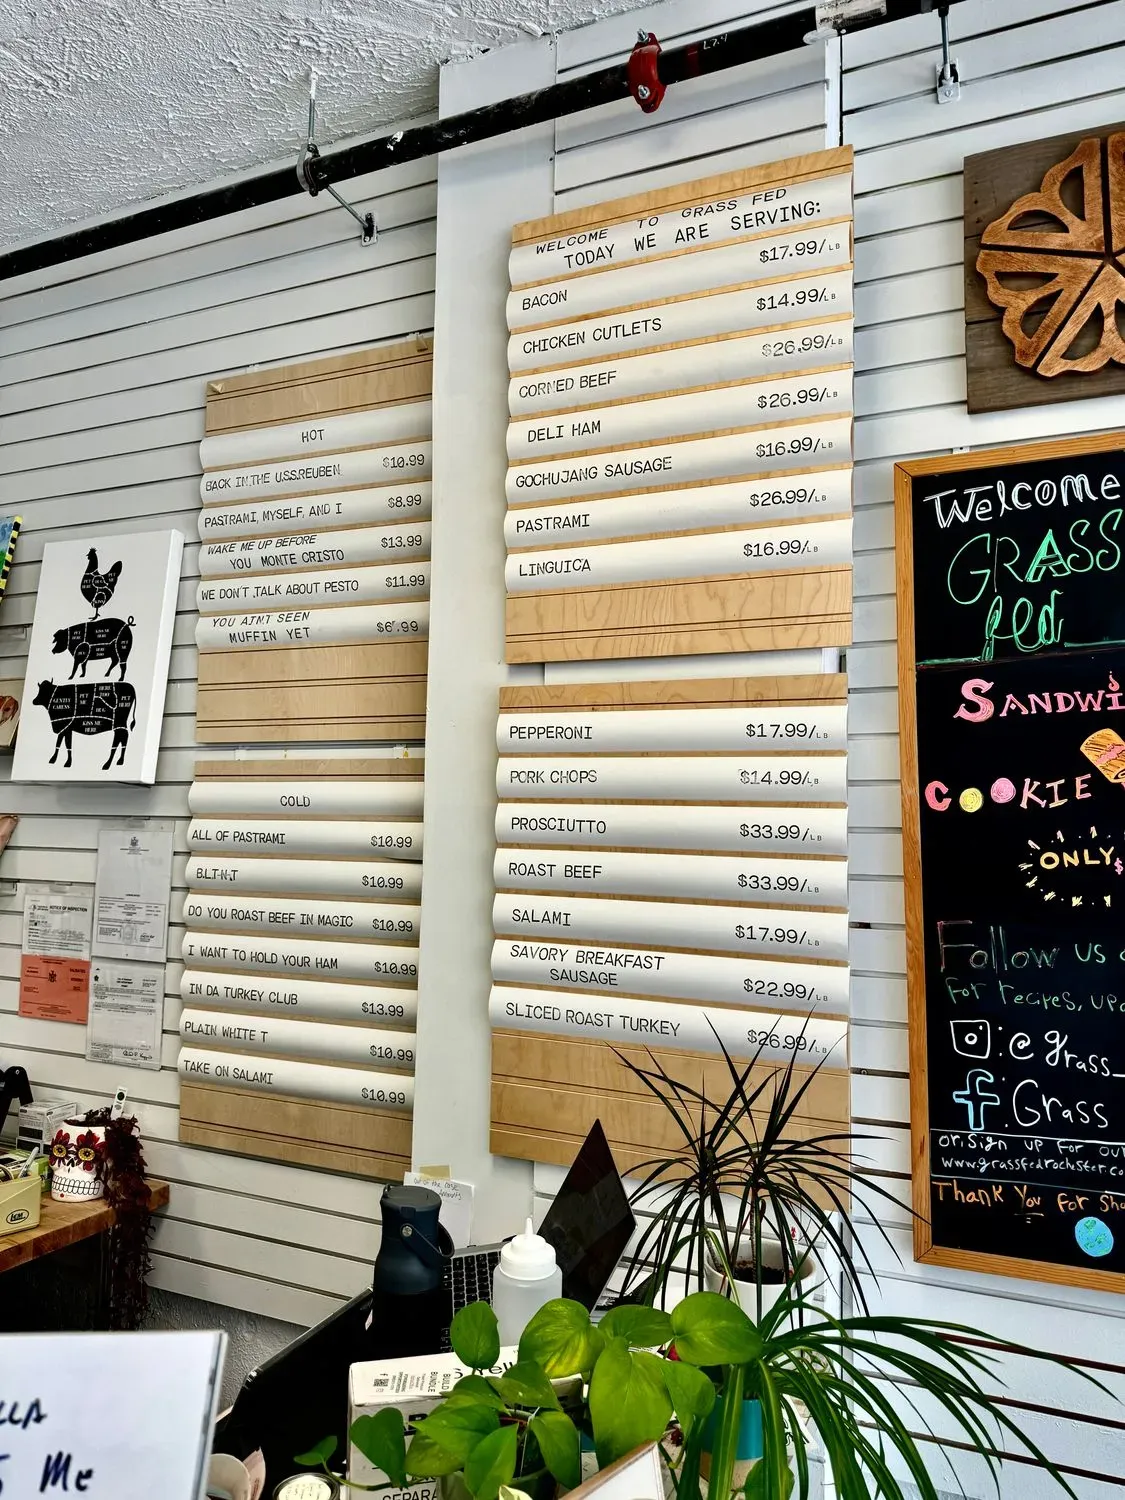 WELCOME TO GRASS FED
TODAY WE ARE SERVING:
BACON $17.99/LB
CHICKEN CUTLETS $14.99/LB
CORNED BEEF $26.99/LB
DELI HAM $26.99/LB
GOCHUJANG SAUSAGE $16.99/LB
PASTRAMI $26.99/LB
LINGUICA $16.99/LB
PEPPERONI $17.99/LB
PORK CHOPS $14.99/LB
PROSCIUTTO $33.99/LB
ROAST BEEF $33.99/LB
SALAMI $17.99/LB
SAVORY BREAKFAST
SAUSAGE $22.99/LB
SLICED ROAST TURKEY $26.99/LB
HOT
BACK IN THE U.S.S.REUBEN $10.99
PASTRAMI, MYSELF, AND I $8.99
WAKE ME UP BEFORE
YOU MONTE CRISTO $13.99
WE DON'T TALK ABOUT PESTO $11.99
YOU AIN'T SEEN
MUFFIN YET $6.99
COLD
ALL OF PASTRAMI $10.99
B.L.T-N-T $10.99
DO YOU ROAST BEEF IN MAGIC $10.99
I WANT TO HOLD YOUR HAM $10.99
IN DA TURKEY CLUB $13.99
PLAIN WHITE T $10.99
TAKE ON SALAMI $10.99
Welcome
GRASS
fed
SANDWI
COOKIE
ONLY $
Follow us
for recipes, up
:@grass_
:Grass
or, sign up for our
www.grassfedrochester.co
Thank You for sho
L7.4
GENTLY
CARESS
PET
ME
HERE
TOO
HUG
PET
HERE
KISS ME
HERE
NOTICE OF INSPECTION
BUILD
BUNDLE
Me